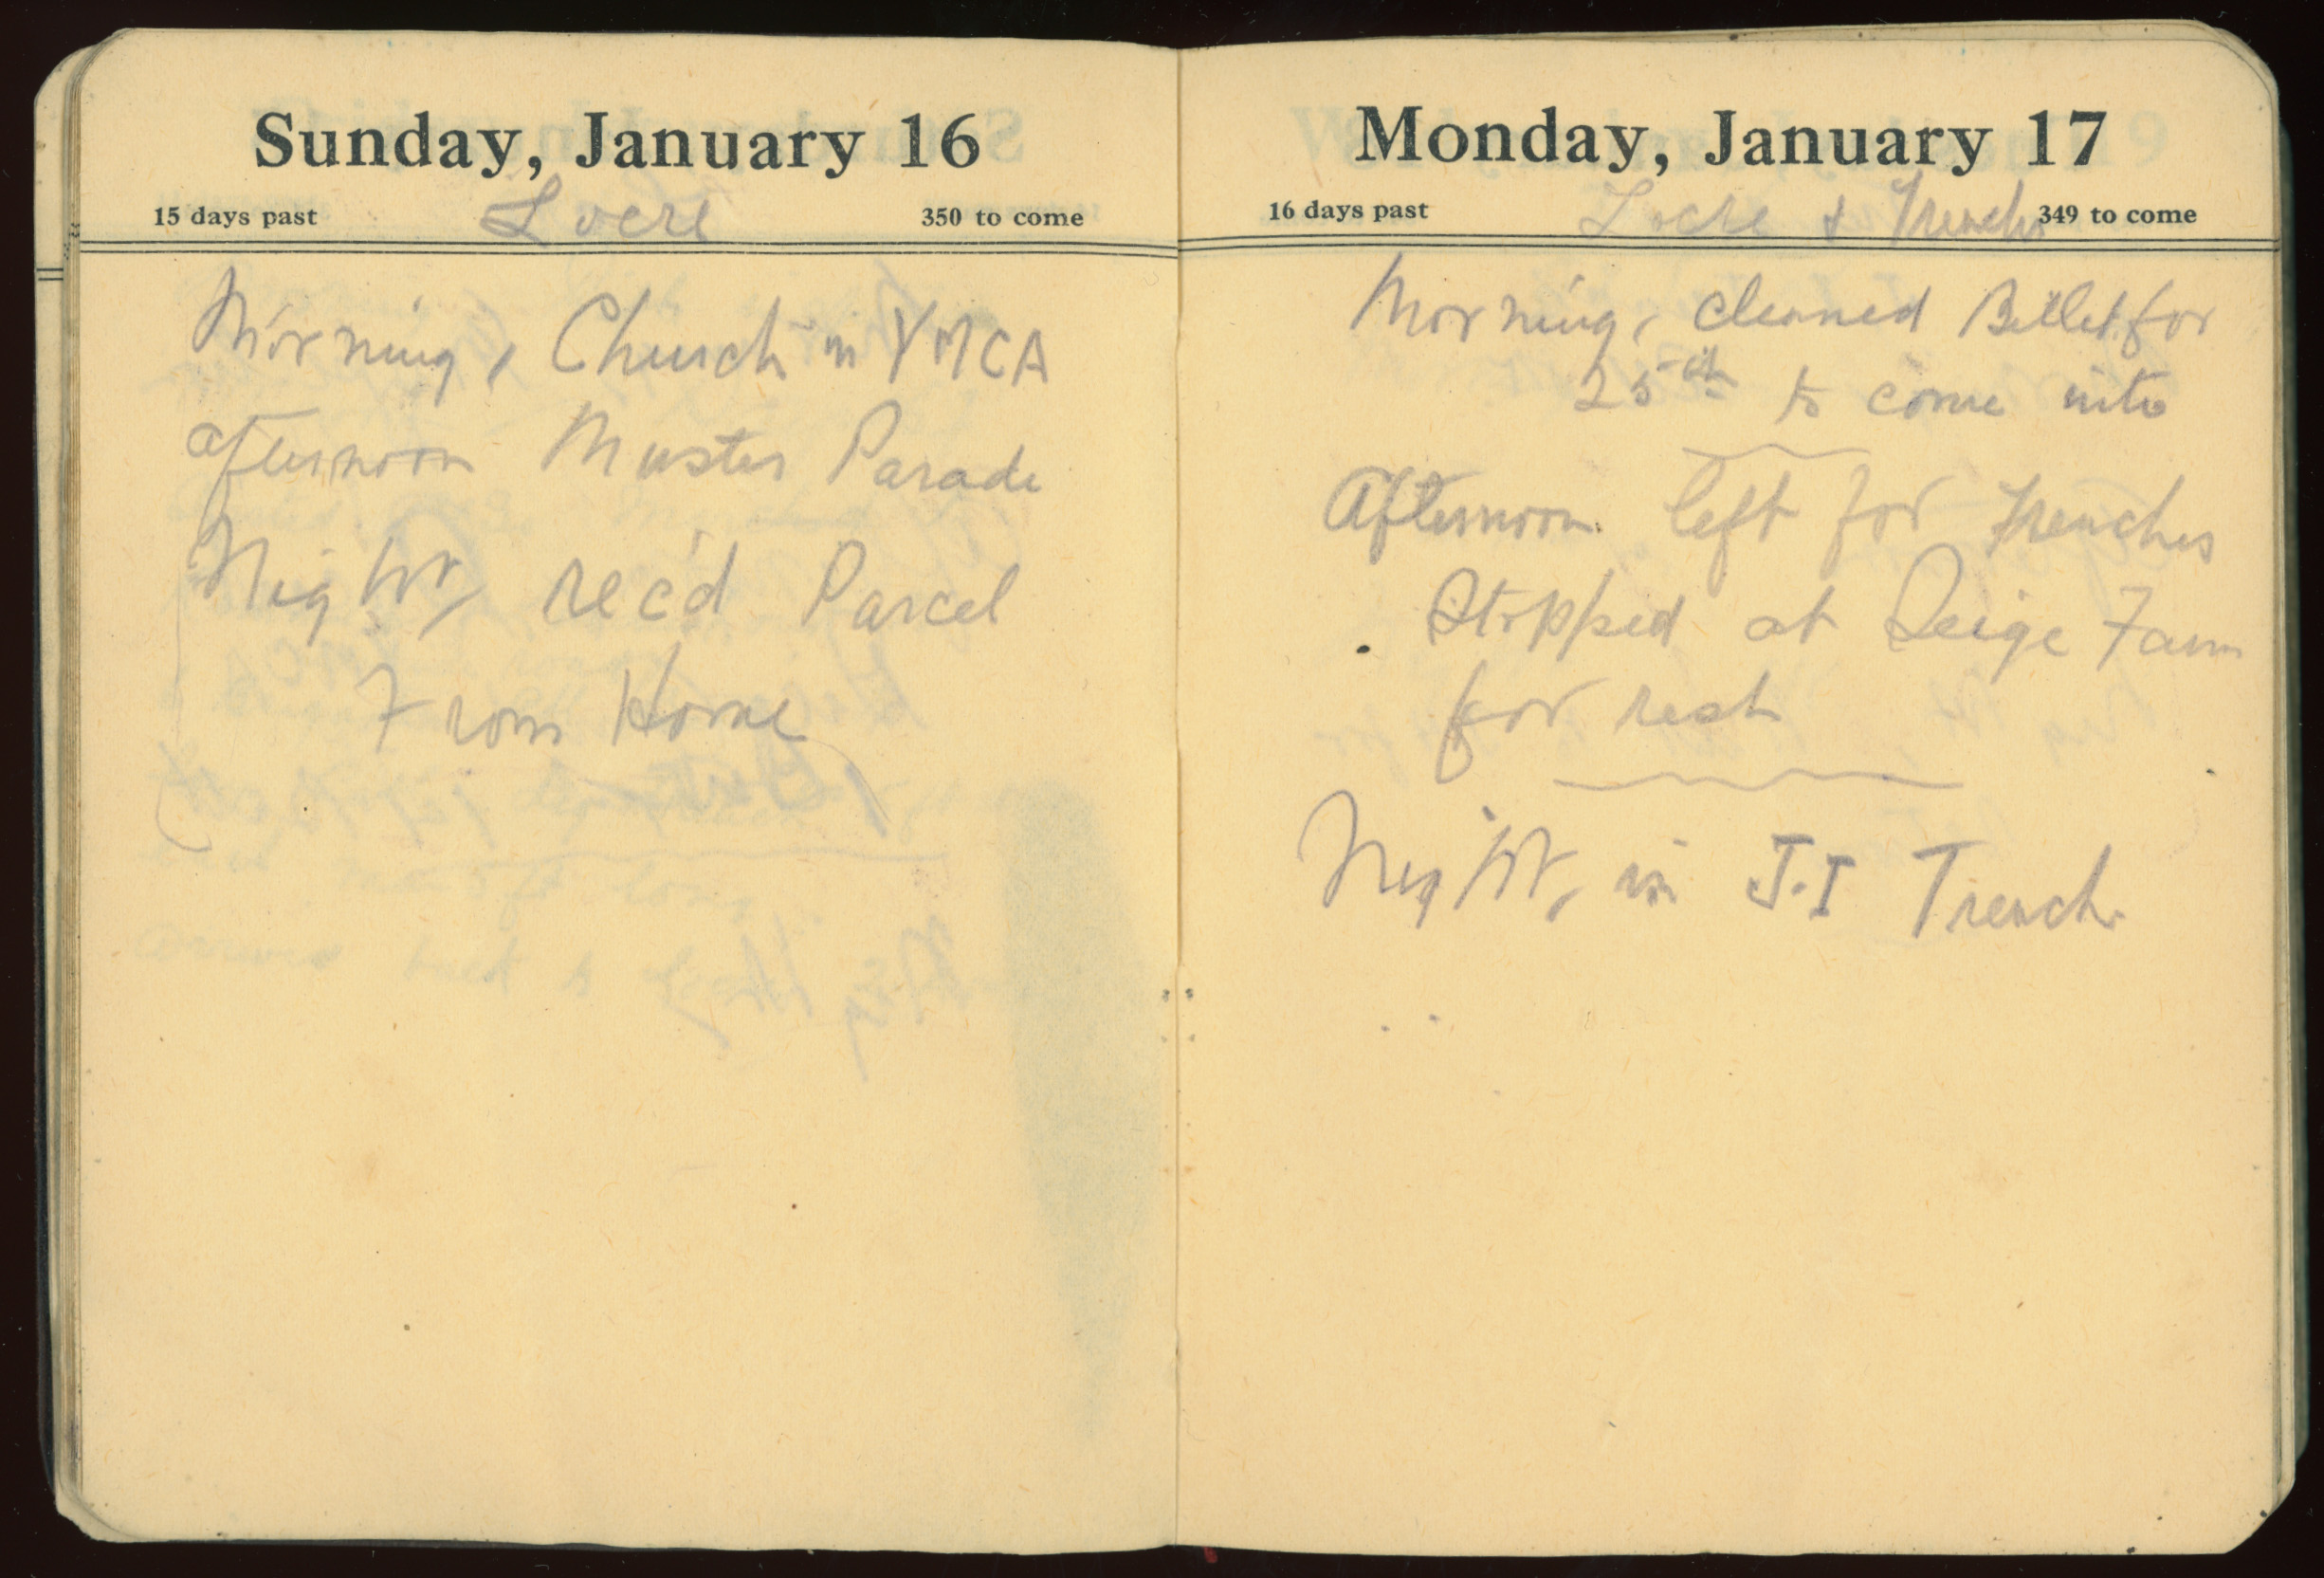 Sunday, January 16
15 days past Locre 350 to come
Morning, Church in YMCA
afternoon Muster Parade
Night, rec'd Parcel
From Home
Monday, January 17
16 days past Locre & Trenches 349 to come
Morning, cleaned Billet for
25th to come into
Afternoon left for Trenches
Stopped at Seige Farm
for rest
Night, in J.I Trench